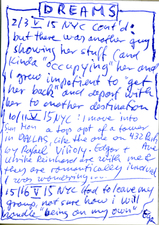 DREAMS
2/3 V 15 NYC cont'd:
but there was another guy
showing her stuff (and
kinda "occupying" her and
I grew impatient to get
her back and depart with
her to another destination
10/11 V 15 NYC I move into
a top apt of a tower
in DALLAS, like the one on 432 Park
Ave
by Rafael Viñoly. Edgar +
Ulrike Reinhard are with me &
they are romantically involved
I was wondering...
15/16 V 15 NYC Had to leave my
group, not sure how I will
handle "being on my own"